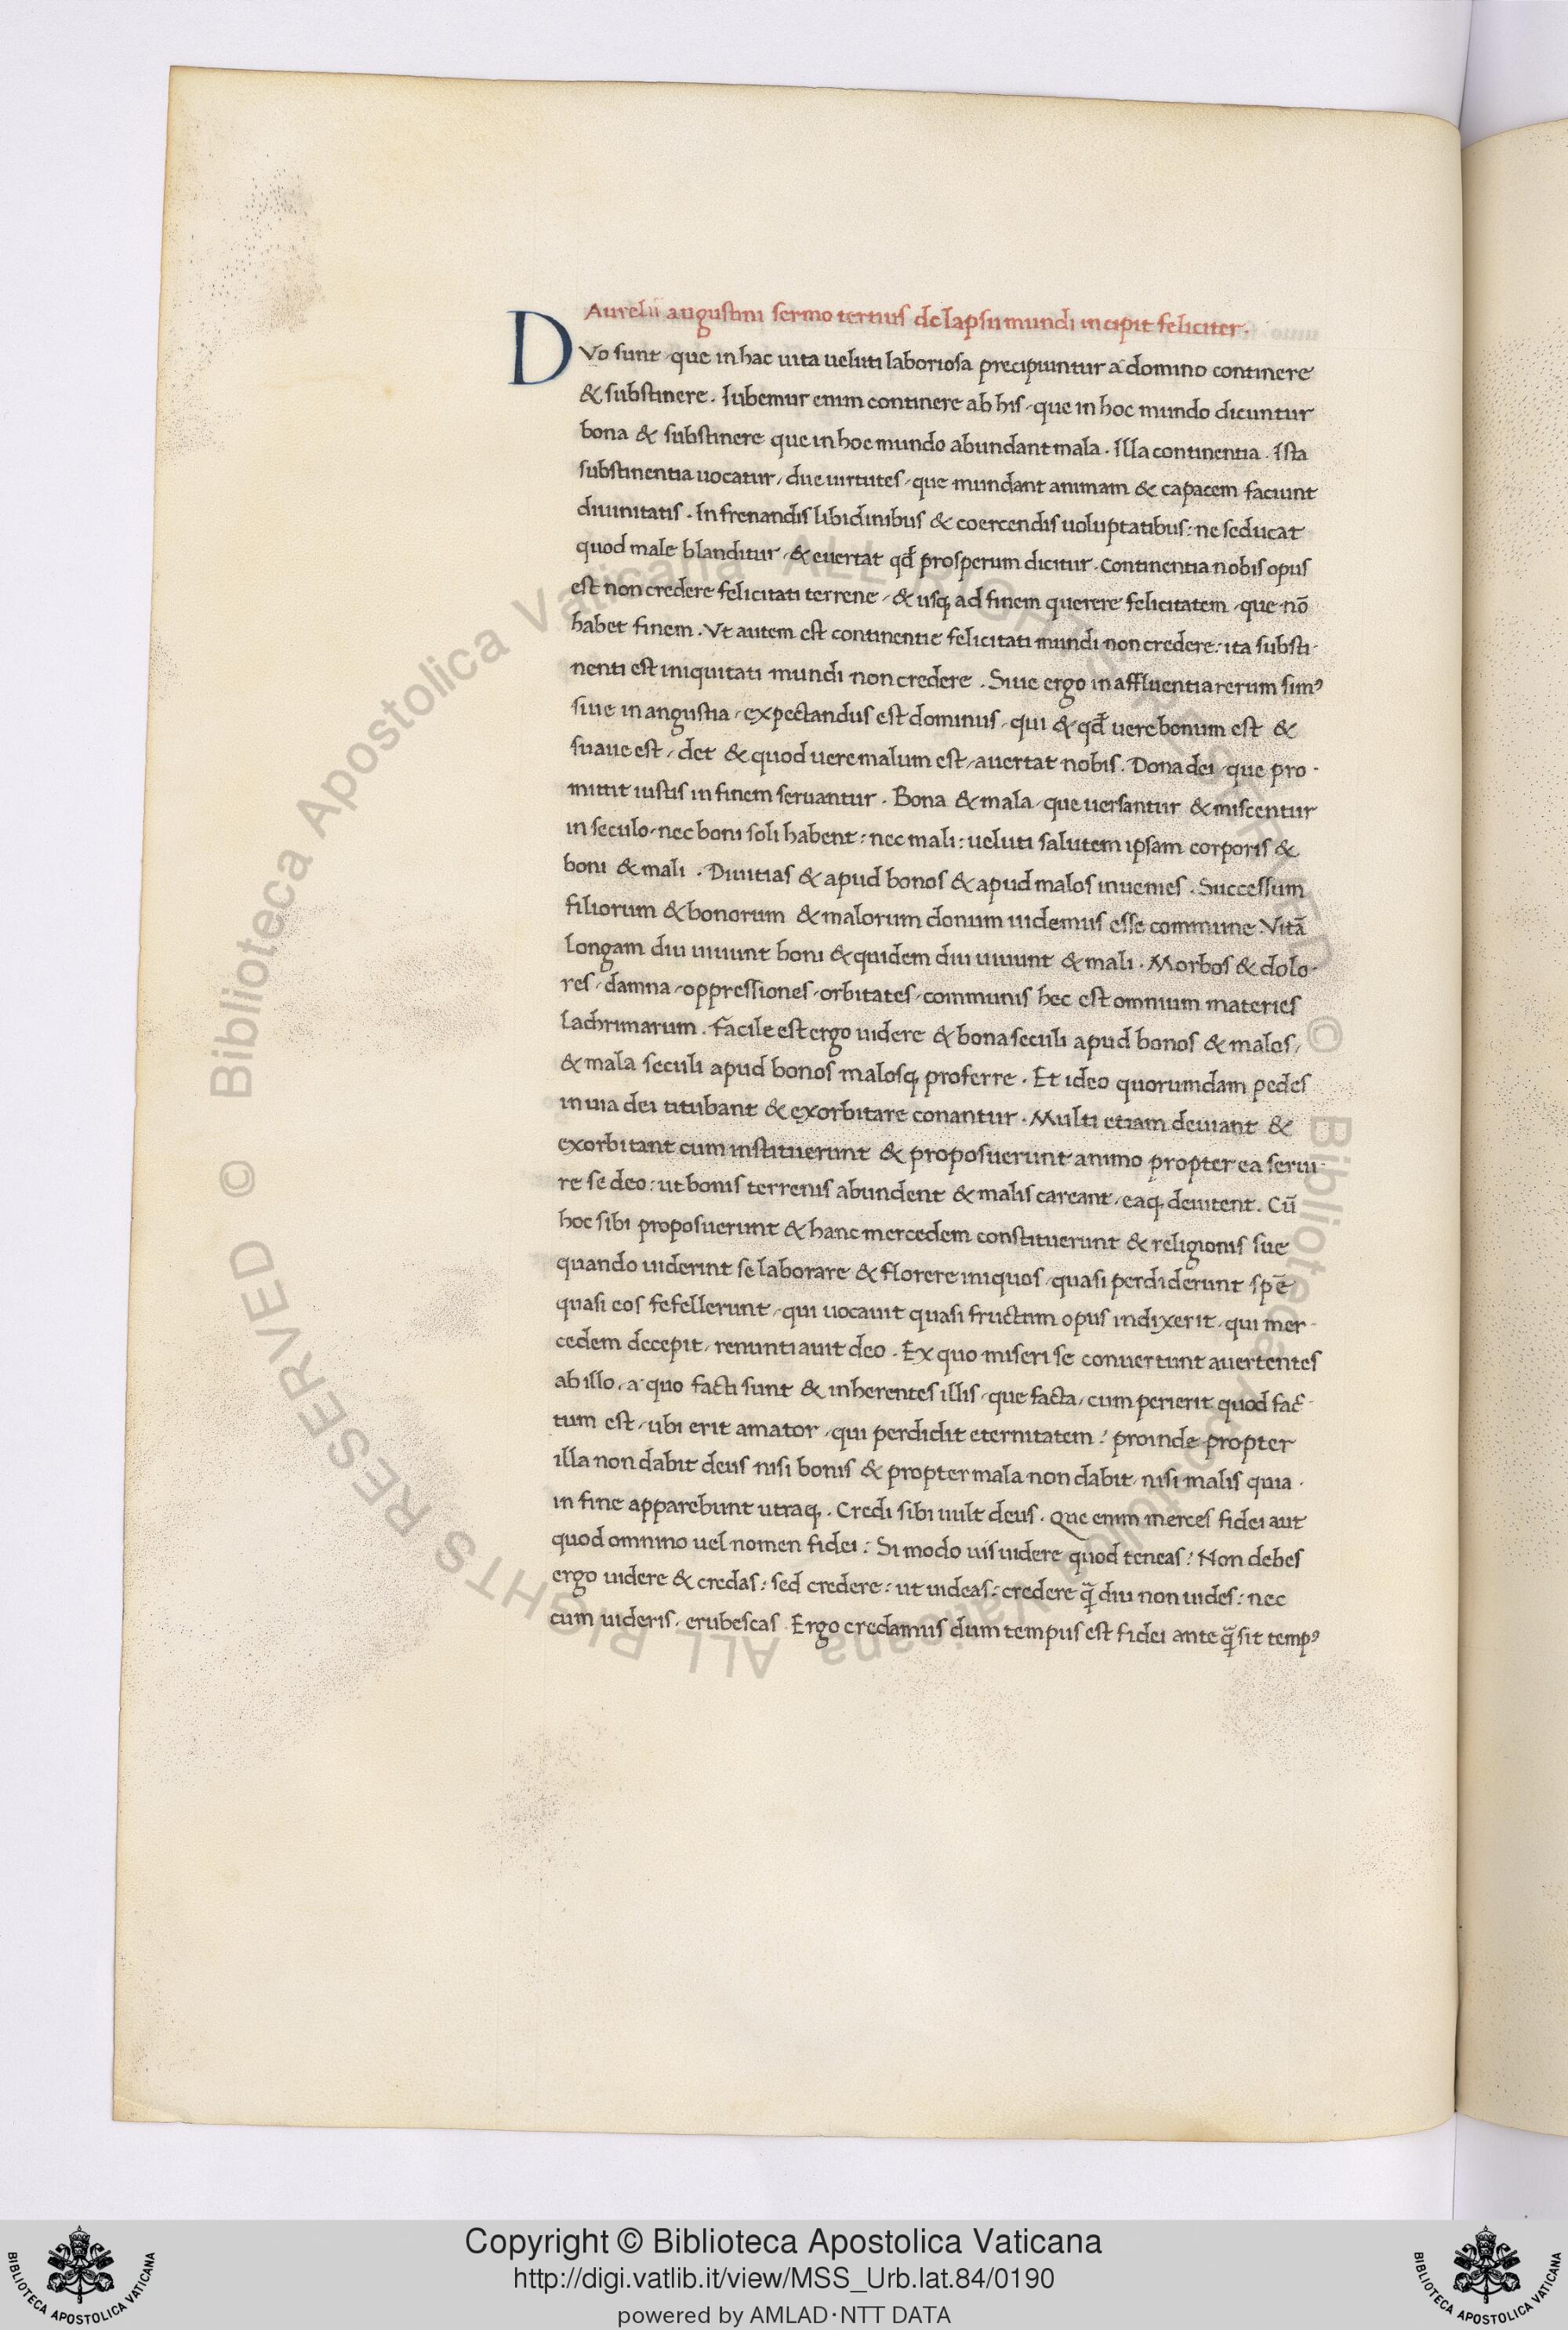 Aurelii augustini sermo tertius de lapsu mundi incipit feliciter.
DVo sunt que in hac uita ueluti laboriosa precipiuntur a domino continere
& substinere. Iubemur enim continere ab his, que in hoc mundo dicuntur
bona & substinere que in hoc mundo abundant mala. Illa continentia. Ista
substinentia uocatur, due uirtutes, que mundant animam & capacem faciunt
diuinitatis. In frenandis libidinibus & coercendis uoluptatibus: ne seducat
quod male blanditur, & euertat qđ prosperum dicitur. Continentia nobis opus
est non credere felicitati terrene, & usq; ad finem querere felicitatem, que nō
habet finem. Vt autem est continentie felicitati mundi non credere: ita substi-
nenti est iniquitati mundi non credere. Siue ergo in affluentia rerum simꝰ
siue in angustia, expectandus est dominus, qui & qđ uere bonum est &
suaue est, det & quod uere malum est, auertat nobis. Dona dei, que pro-
mittit iustis in finem seruantur. Bona & mala, que uersantur & miscentur
in seculo, nec boni soli habent: nec mali: ueluti salutem ipsam corporis &
boni & mali. Diuitias & apud bonos & apud malos inuenies. Successum
filiorum & bonorum & malorum donum uidemus esse commune. Vitā
longam diu uiuunt boni & quidem diu uiuunt & mali. Morbos & dolo-
res, damna, oppressiones, orbitates, communis hec est omnium materies
lachrimarum. Facile est ergo uidere & bona seculi apud bonos & malos,
& mala seculi apud bonos malosq; proferre. Et ideo quorumdam pedes
in uia dei titubant & exorbitare conantur. Multi etiam deuiant &
exorbitant cum instituerunt & proposuerunt animo propter ea serui-
re se deo: ut bonis terrenis abundent & malis careant, eaq; deuitent. Cū
hoc sibi proposuerunt & hanc mercedem constituerunt & religionis sue
quando uiderint se laborare & florere iniquos, quasi perdiderunt spē
quasi eos fefellerunt, qui uocauit quasi fructum opus indixerit, qui mer-
cedem decepit, renuntiauit deo. Ex quo miseri se conuertunt auertentes
ab illo, a quo facti sunt & inherentes illis, que facta, cum perierit quod fac-
tum est, ubi erit amator, qui perdidit eternitatem? proinde propter
illa non dabit deus nisi bonis & propter mala non dabit, nisi malis quia
in fine apparebunt utraq;. Credi sibi uult deus. Que enim merces fidei aut
quod omnino uel nomen fidei: Si modo uis uidere quod teneas? Non debes
ergo uidere & credas: sed credere: ut uideas: credere q̄ diu non uides: nec
cum uideris, erubescas. Ergo credamus dum tempus est fidei ante q̄ sit tempꝰ
© Biblioteca Apostolica Vaticana ALL RIGHTS RESERVED
© Biblioteca Apostolica Vaticana ALL RIGHTS RESERVED
BIBLIOTECA APOSTOLICA VATICANA
Copyright © Biblioteca Apostolica Vaticana
http://digi.vatlib.it/view/MSS_Urb.lat.84/0190
powered by AMLAD·NTT DATA
BIBLIOTECA APOSTOLICA VATICANA